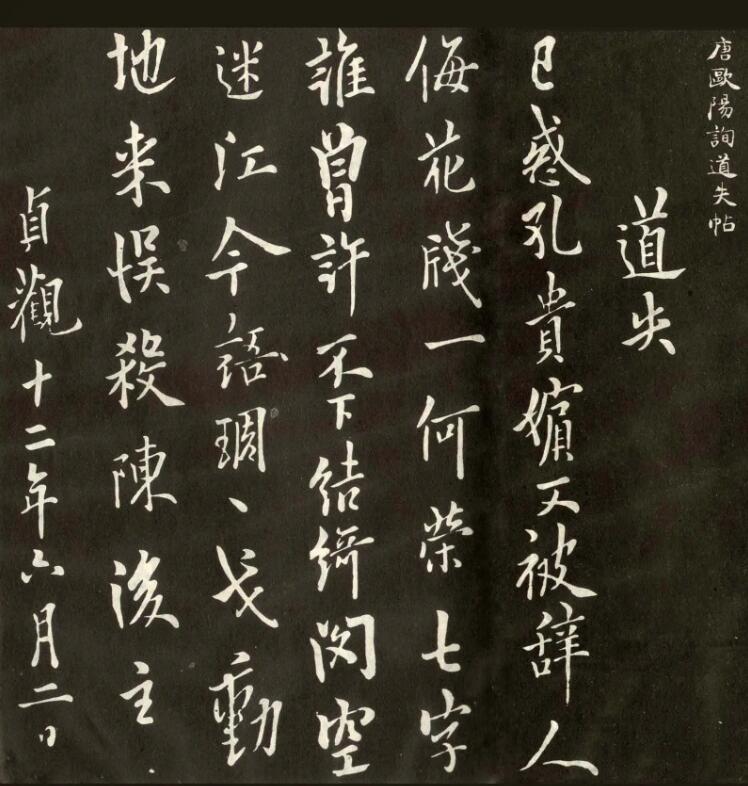 唐歐陽詢道失帖
道失
已惑孔貴嬪又被辞人
侮花牋一何荣七字
誰曽許不下結綺閣空
迷江令語琱丶戈動
地来悮殺陳後主
貞觀十二年六月二日